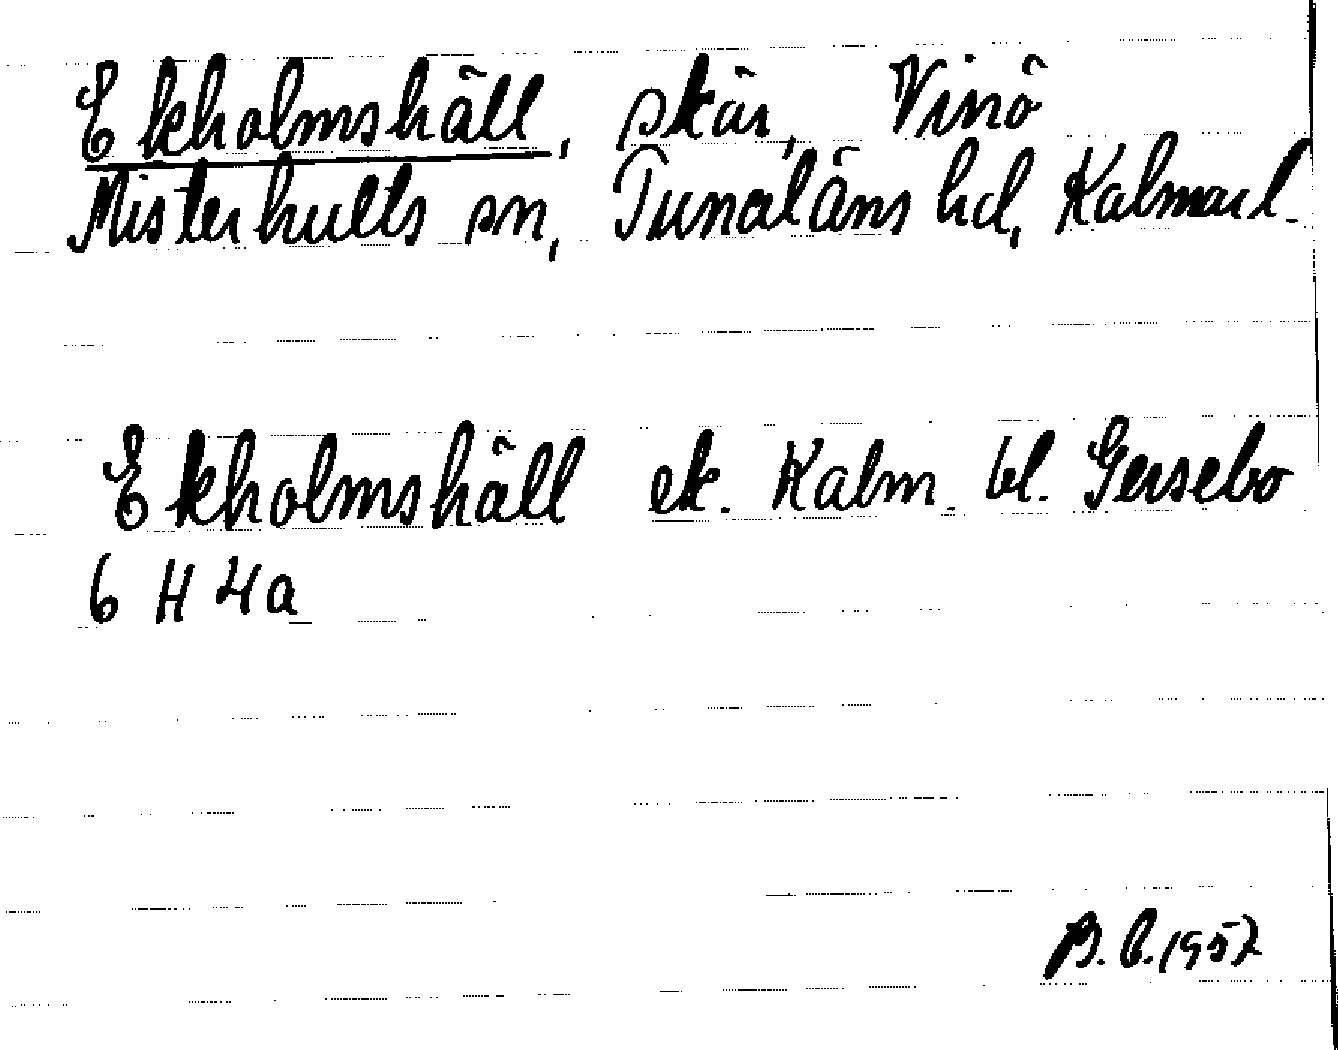 Ekholmshäll, skär, Vinö
Misterhults sn, Tunaläns hd, Kalmar l.
Ekholmshäll ek. Kalm. bl. Gersebo
6 H 4a
B. C. 1957